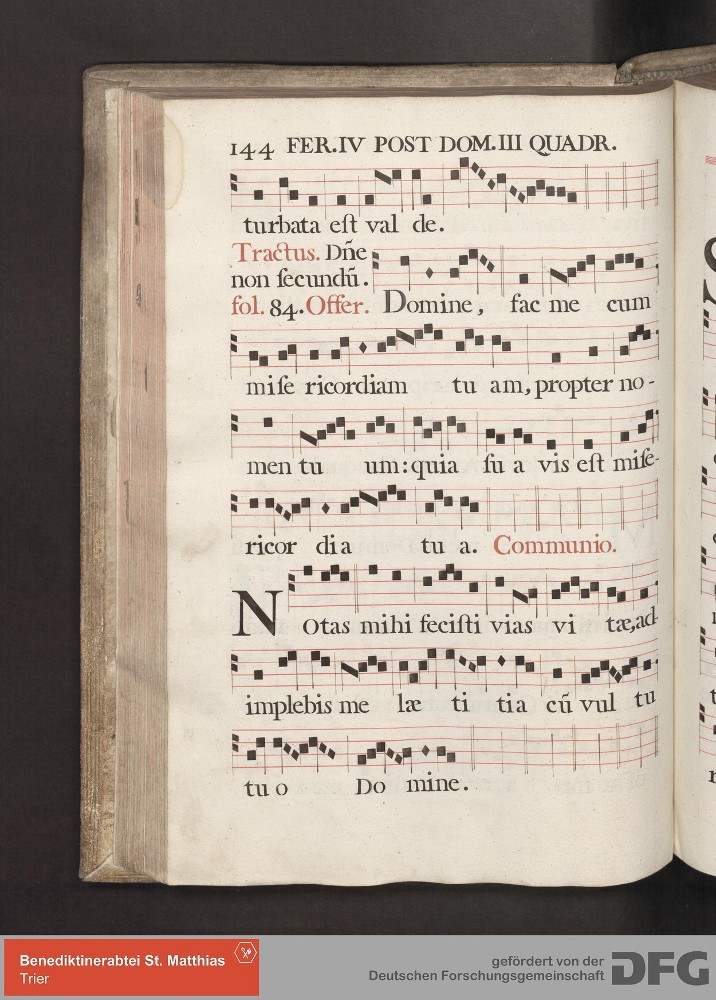 144 FER.IV POST DOM.III QUADR.
turbata eſt val de.
Tractus. Dñe
non ſecundũ.
fol. 84. Offer. Domine, fac me cum
miſe ricordiam tu am, propter no-
men tu um: quia ſu a vis eſt miſe-
ricor dia tu a. Communio.
Notas mihi feciſti vias vi tæ, ad-
implebis me læ ti tia cũ vul tu
tu o Do mine.
Benediktinerabtei St. Matthias
Trier
gefördert von der
Deutschen Forschungsgemeinschaft
DFG